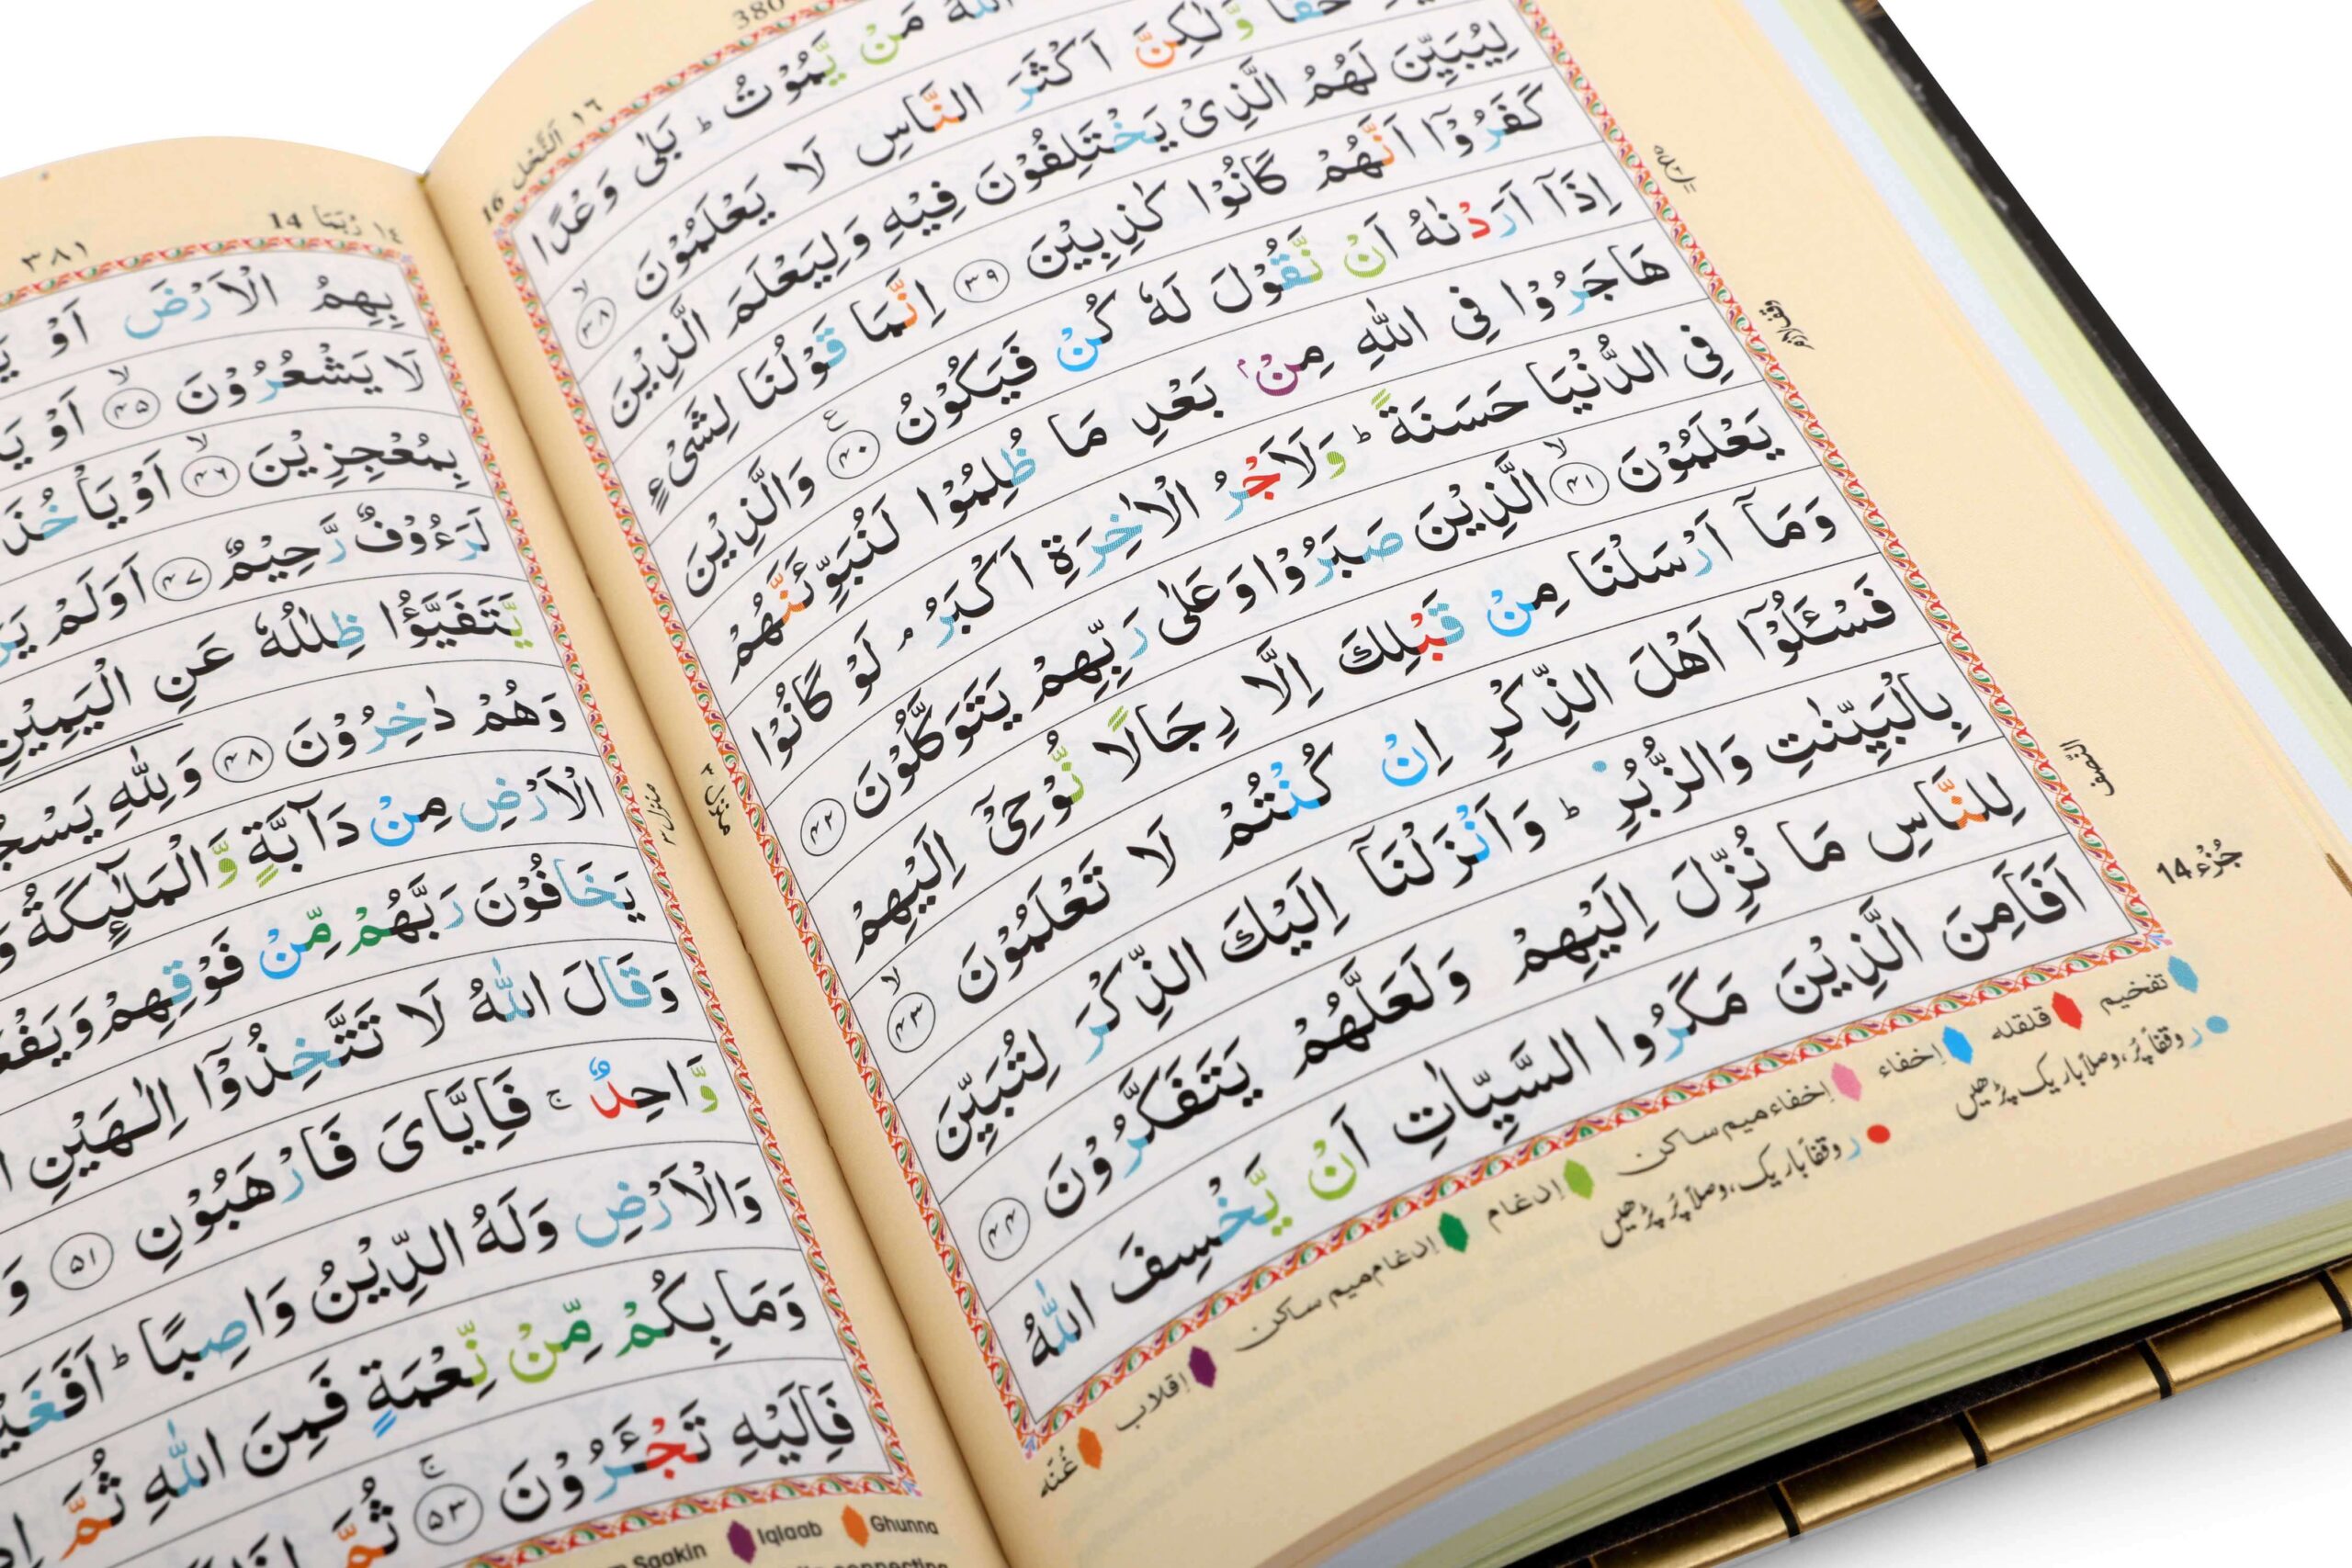 380
١٦ اَلنَّحل 16
اللّٰهُ مَنْ يَّمُوْتُ ؕ بَلٰى وَعْدًا
حَقًّا وَّلٰكِنَّ اَكْثَرَ النَّاسِ لَا يَعْلَمُوْنَ ﴿۳۸﴾ۙ
لِيُبَيِّنَ لَهُمُ الَّذِىْ يَخْتَلِفُوْنَ فِيْهِ وَلِيَعْلَمَ الَّذِيْنَ
كَفَرُوْۤا اَنَّهُمْ كَانُوْا كٰذِبِيْنَ ﴿۳۹﴾ اِنَّمَا قَوْلُنَا لِشَىْءٍ
اِذَاۤ اَرَدْنٰهُ اَنْ نَّقُوْلَ لَهٗ كُنْ فَيَكُوْنُ ﴿۴۰﴾ؑ وَالَّذِيْنَ
هَاجَرُوْا فِى اللّٰهِ مِنْۢ بَعْدِ مَا ظُلِمُوْا لَنُبَوِّئَنَّهُمْ
فِى الدُّنْيَا حَسَنَةً ؕ وَلَاَجْرُ الْاٰخِرَةِ اَكْبَرُ ۘ لَوْ كَانُوْا
يَعْلَمُوْنَ ﴿۴۱﴾ۙ الَّذِيْنَ صَبَرُوْا وَعَلٰى رَبِّهِمْ يَتَوَكَّلُوْنَ ﴿۴۲﴾
وَمَاۤ اَرْسَلْنَا مِنْ قَبْلِكَ اِلَّا رِجَالًا نُّوْحِىْۤ اِلَيْهِمْ
فَسْـَٔلُوْۤا اَهْلَ الذِّكْرِ اِنْ كُنْتُمْ لَا تَعْلَمُوْنَ ﴿۴۳﴾ۙ
بِالْبَيِّنٰتِ وَالزُّبُرِ ؕ وَاَنْزَلْنَاۤ اِلَيْكَ الذِّكْرَ لِتُبَيِّنَ
لِلنَّاسِ مَا نُزِّلَ اِلَيْهِمْ وَلَعَلَّهُمْ يَتَفَكَّرُوْنَ ﴿۴۴﴾
اَفَاَمِنَ الَّذِيْنَ مَكَرُوا السَّيِّاٰتِ اَنْ يَّخْسِفَ اللّٰهُ
وقف لازم
النّصف
جُزْء 14
منزل ۳
تفخیم قلقله اِخفاء اِخفاء میم ساکن اِدغام اِدغام میم ساکن اِقلاب غُنّه
ر وقفاً پُر، وصلاً باریک پڑھیں
ر وقفاً باریک، وصلاً پُر پڑھیں
۳۸۱
١٤ رُبَمَا 14
بِهِمُ الْاَرْضَ اَوْ
لَا يَشْعُرُوْنَ ﴿۴۵﴾ۙ اَوْ
بِمُعْجِزِيْنَ ﴿۴۶﴾ۙ اَوْ يَاْخُذَ
لَرَءُوْفٌ رَّحِيْمٌ ﴿۴۷﴾ اَوَلَمْ
يَّتَفَيَّؤُا ظِلٰلُهٗ عَنِ الْيَمِيْنِ
وَهُمْ دٰخِرُوْنَ ﴿۴۸﴾ وَلِلّٰهِ
الْاَرْضِ مِنْ دَآبَّةٍ وَّالْمَلٰٓئِكَةُ
يَخَافُوْنَ رَبَّهُمْ مِّنْ فَوْقِهِمْ
وَقَالَ اللّٰهُ لَا تَتَّخِذُوْۤا اِلٰهَيْنِ
وَّاحِدٌ ۚ فَاِيَّاىَ فَارْهَبُوْنِ ﴿۵۱﴾
وَالْاَرْضِ وَلَهُ الدِّيْنُ وَاصِبًا ؕ
وَمَا بِكُمْ مِّنْ نِّعْمَةٍ فَمِنَ اللّٰهِ ثُمَّ
فَاِلَيْهِ تَجْــَٔرُوْنَ ﴿۵۳﴾ۚ ثُمَّ
منزل ۳
Saakin Iqlaab Ghunna
connecting